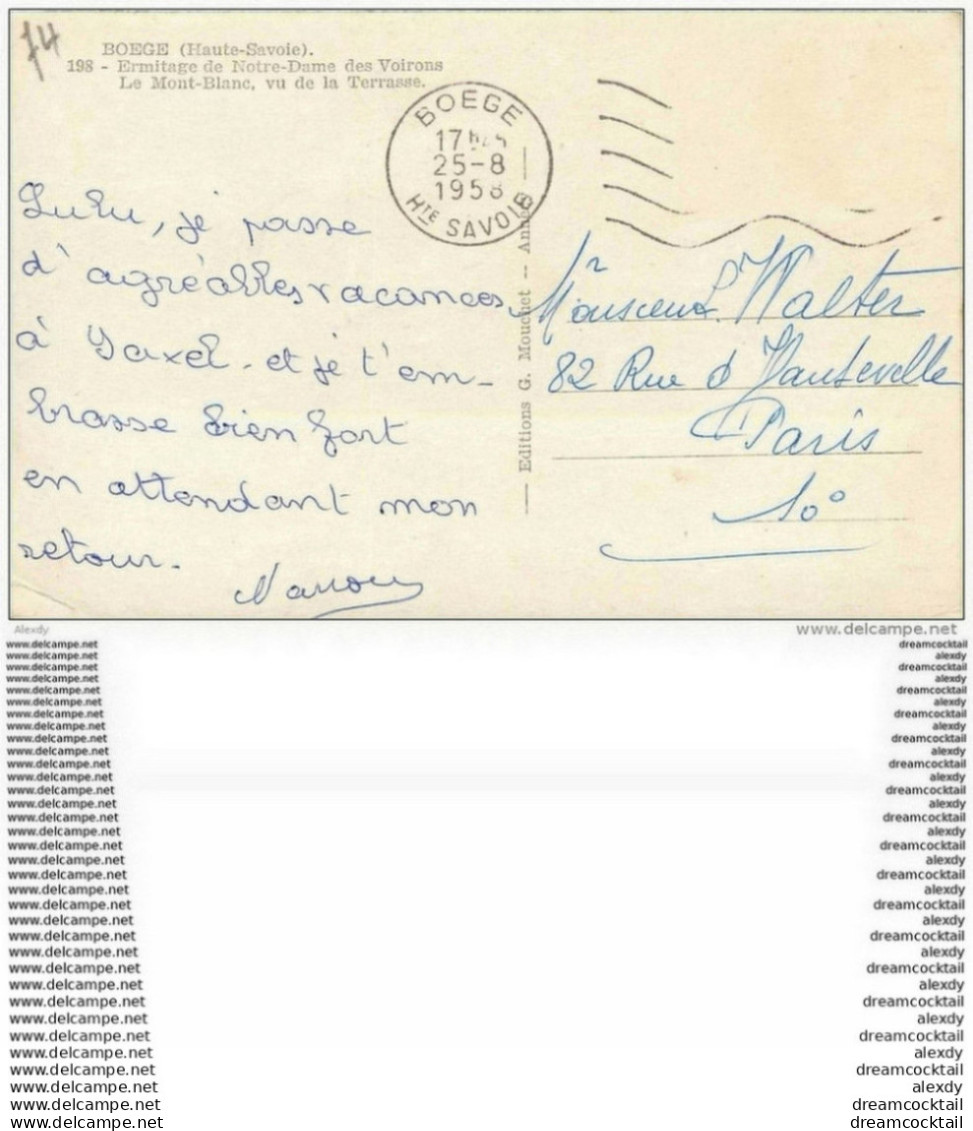 74
BOEGE (Haute-Savoie).
198 - Ermitage de Notre-Dame des Voirons
Le Mont-Blanc, vu de la Terrasse.
BOEGE
17
25-8
1958
HTE SAVOIE
Lulu, je passe
d'agréables vacances
à Saxel. et je t'em-
brasse bien fort
en attendant mon
retour.
— Editions G. Mouchet -- Anne
Monsieur Walter
82 Rue d'Hauteville
Paris
10°
Alexdy
www.delcampe.net
www.delcampe.net dreamcocktail
www.delcampe.net alexdy
www.delcampe.net dreamcocktail
www.delcampe.net alexdy
www.delcampe.net dreamcocktail
www.delcampe.net alexdy
www.delcampe.net dreamcocktail
www.delcampe.net alexdy
www.delcampe.net dreamcocktail
www.delcampe.net alexdy
www.delcampe.net dreamcocktail
www.delcampe.net alexdy
www.delcampe.net dreamcocktail
www.delcampe.net alexdy
www.delcampe.net dreamcocktail
www.delcampe.net alexdy
www.delcampe.net dreamcocktail
www.delcampe.net alexdy
www.delcampe.net dreamcocktail
www.delcampe.net alexdy
www.delcampe.net dreamcocktail
www.delcampe.net alexdy
www.delcampe.net dreamcocktail
www.delcampe.net alexdy
www.delcampe.net dreamcocktail
www.delcampe.net alexdy
www.delcampe.net dreamcocktail
www.delcampe.net alexdy
www.delcampe.net dreamcocktail
www.delcampe.net alexdy
www.delcampe.net dreamcocktail
www.delcampe.net alexdy
www.delcampe.net dreamcocktail
www.delcampe.net alexdy
www.delcampe.net dreamcocktail
www.delcampe.net dreamcocktail